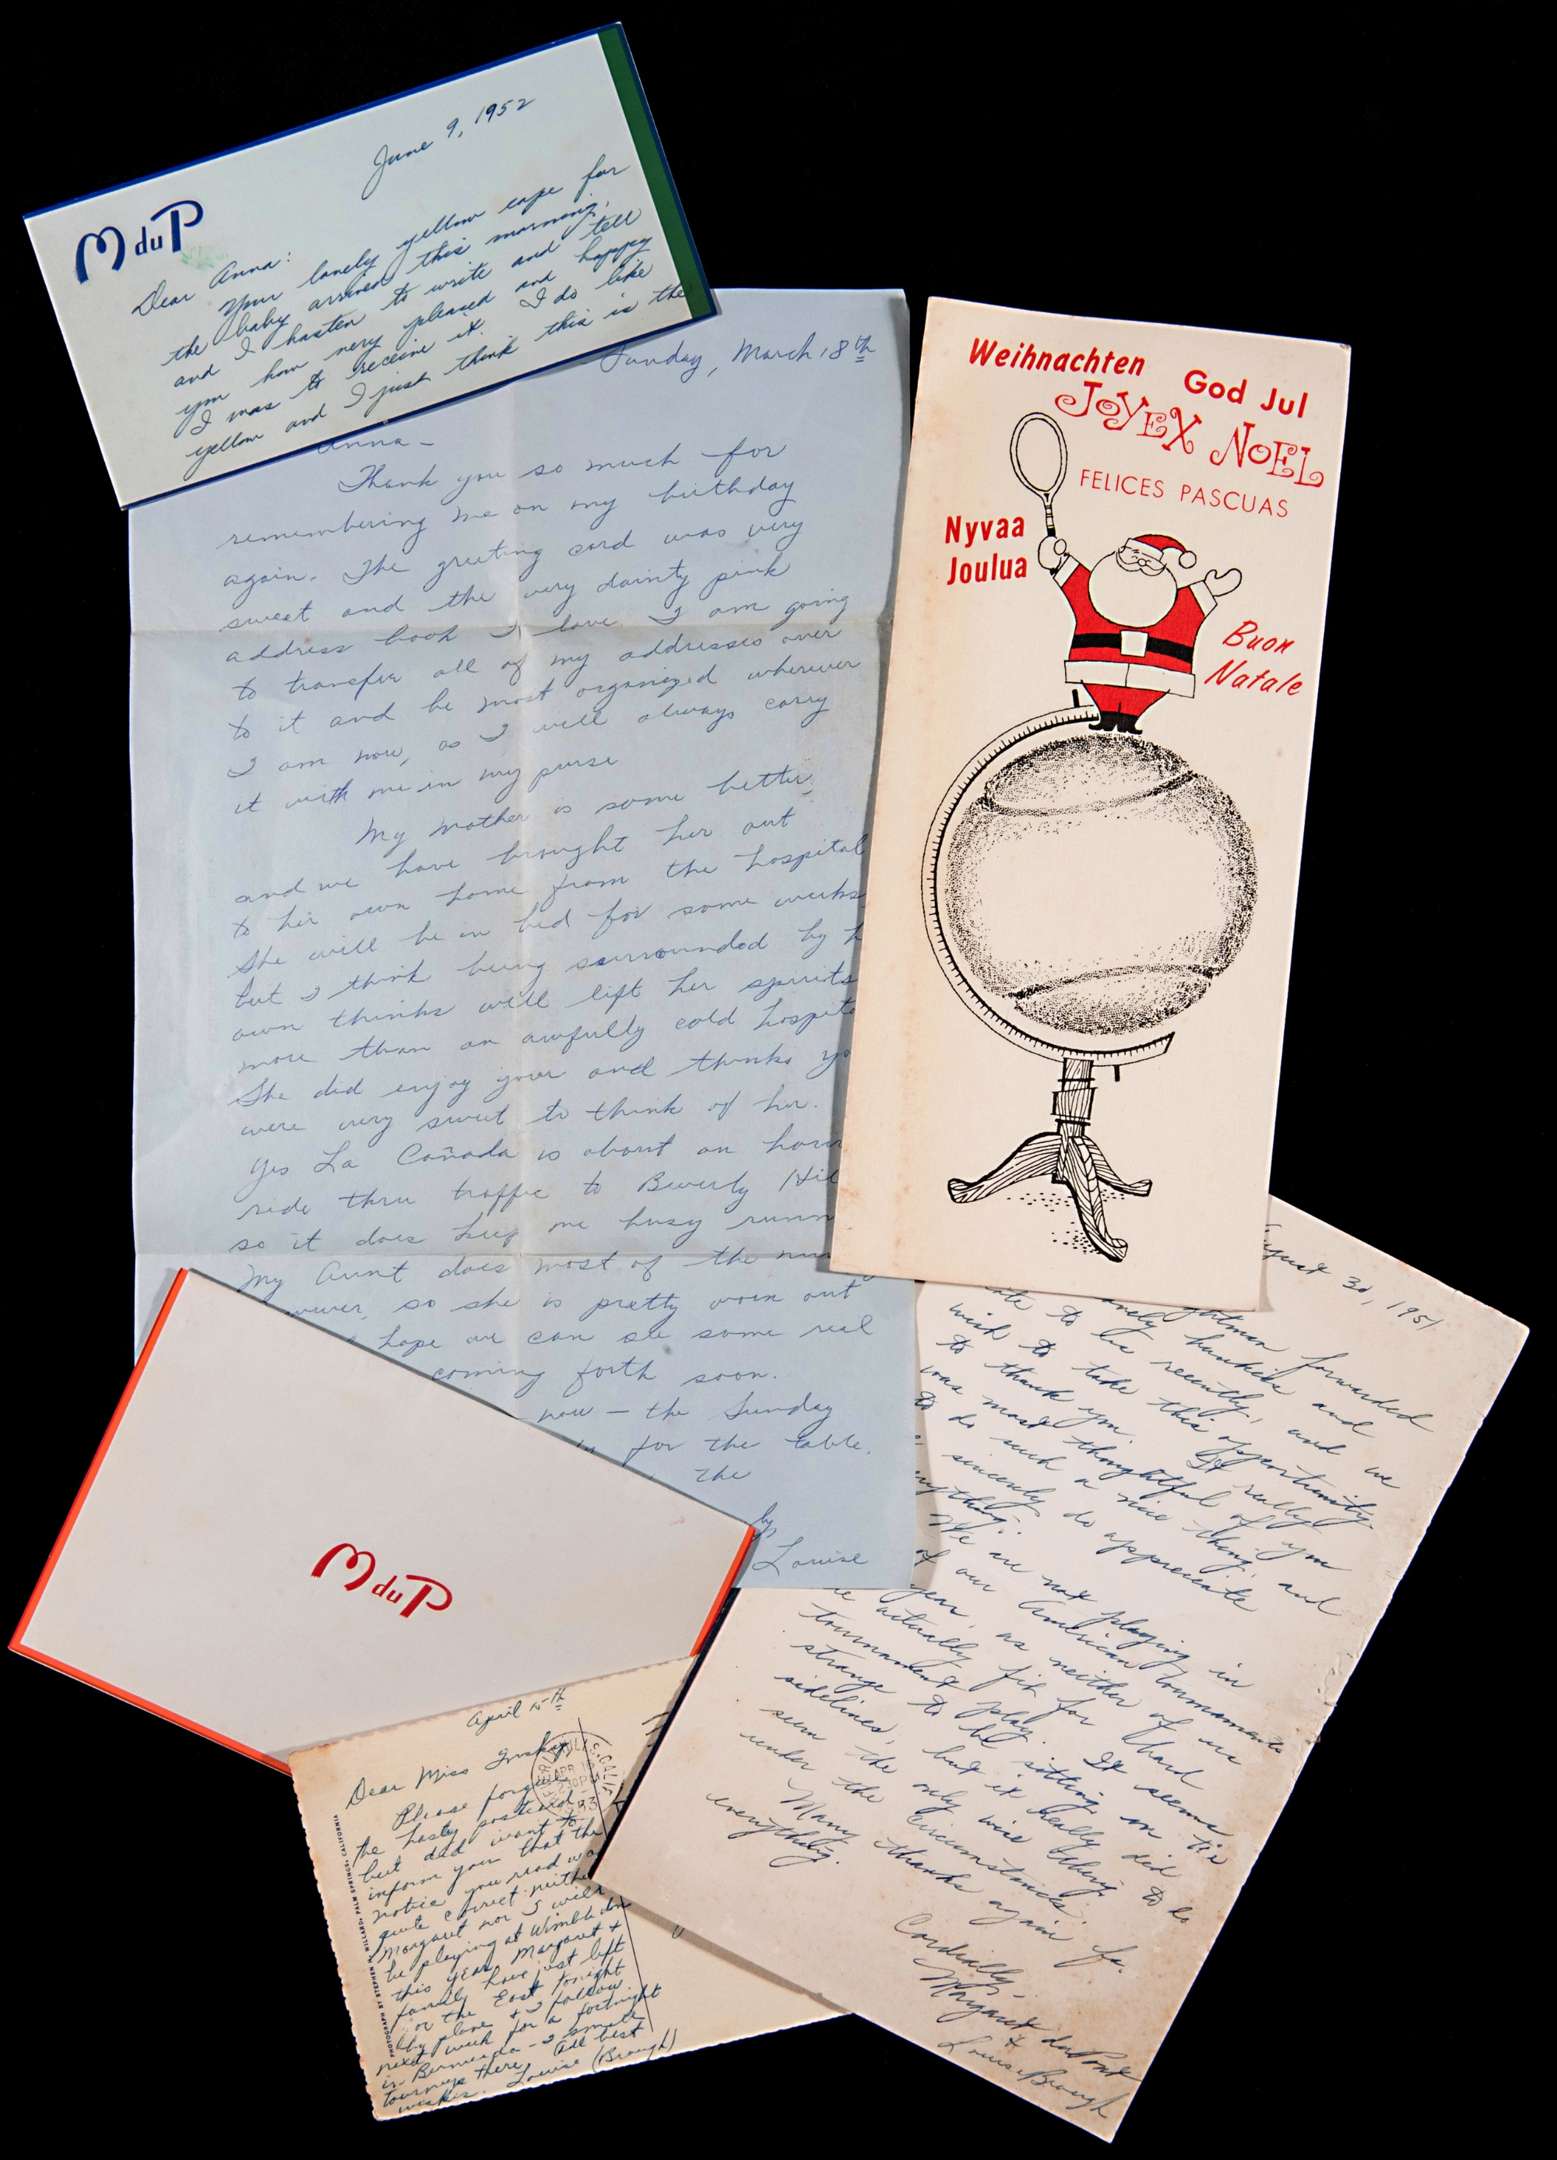 June 9, 1952
M du P
Dear Anna:
Your lovely yellow cape for
the baby arrived this morning,
and I hasten to write and tell
you how very pleased and happy
I was to receive it. I do like
yellow and I just think this is the
Sunday, March 18th
Anna –
Thank you so much for
remembering me on my birthday
again. The greeting card was very
sweet and the very dainty pink
address book I love. I am going
to transfer all of my addresses over
to it and be most organized wherever
I am now, as I will always carry
it with me in my purse
My mother is some better,
and we have brought her out
to her own home from the hospital
She will be in bed for some weeks
but I think being surrounded by h
own thinks will lift her spirits
more than an awfully cold hospit
She did enjoy your and thinks yo
were very sweet to think of her.
Yes La Cañada is about an hour
ride thru traffic to Beverly Hil
so it does keep me busy runn
My Aunt does most of the nur
so she is pretty worn out
hope we can see some real
coming forth soon.
now – the Sunday
for the table.
The
by
Louise
Weihnachten
God Jul
Joyex Noel
FELICES PASCUAS
Nyvaa
Joulua
Buon
Natale
M du P
August 31, 1951
ghtman forwarded
ovely hankies and
ate to us recently, and we
wish to take this opportunity
to thank you. It really
was most thoughtful of you
to do such a nice thing, and
sincerely do appreciate
erything.
We are not playing in
of our American tournaments
year, as neither of us
re actually fit for hard
tournament play. It seems
strange to be sitting on the
sidelines, but it really did
seem the only wise thing to do
under the circumstances.
Many thanks again for
everything.
Cordially,
Margaret du Pont
&
Louise Brough
April 15th
Dear Miss
Please forgive
the hasty postcard
but did want to
inform you that the
notice you read wa
quite correct neithe
Margaret nor I will
be playing at Wimbledon
this year. Margaret +
family have just left
or the East tonight
by plane + I follow
next week for a fortnight
in Bermuda – 2 small
tourneys there. All best
wishes. Louise (Brough)
CALIF
APR
PHOTOGRAPH BY STEPHEN H. WILLARD, PALM SPRINGS, CALIFORNIA